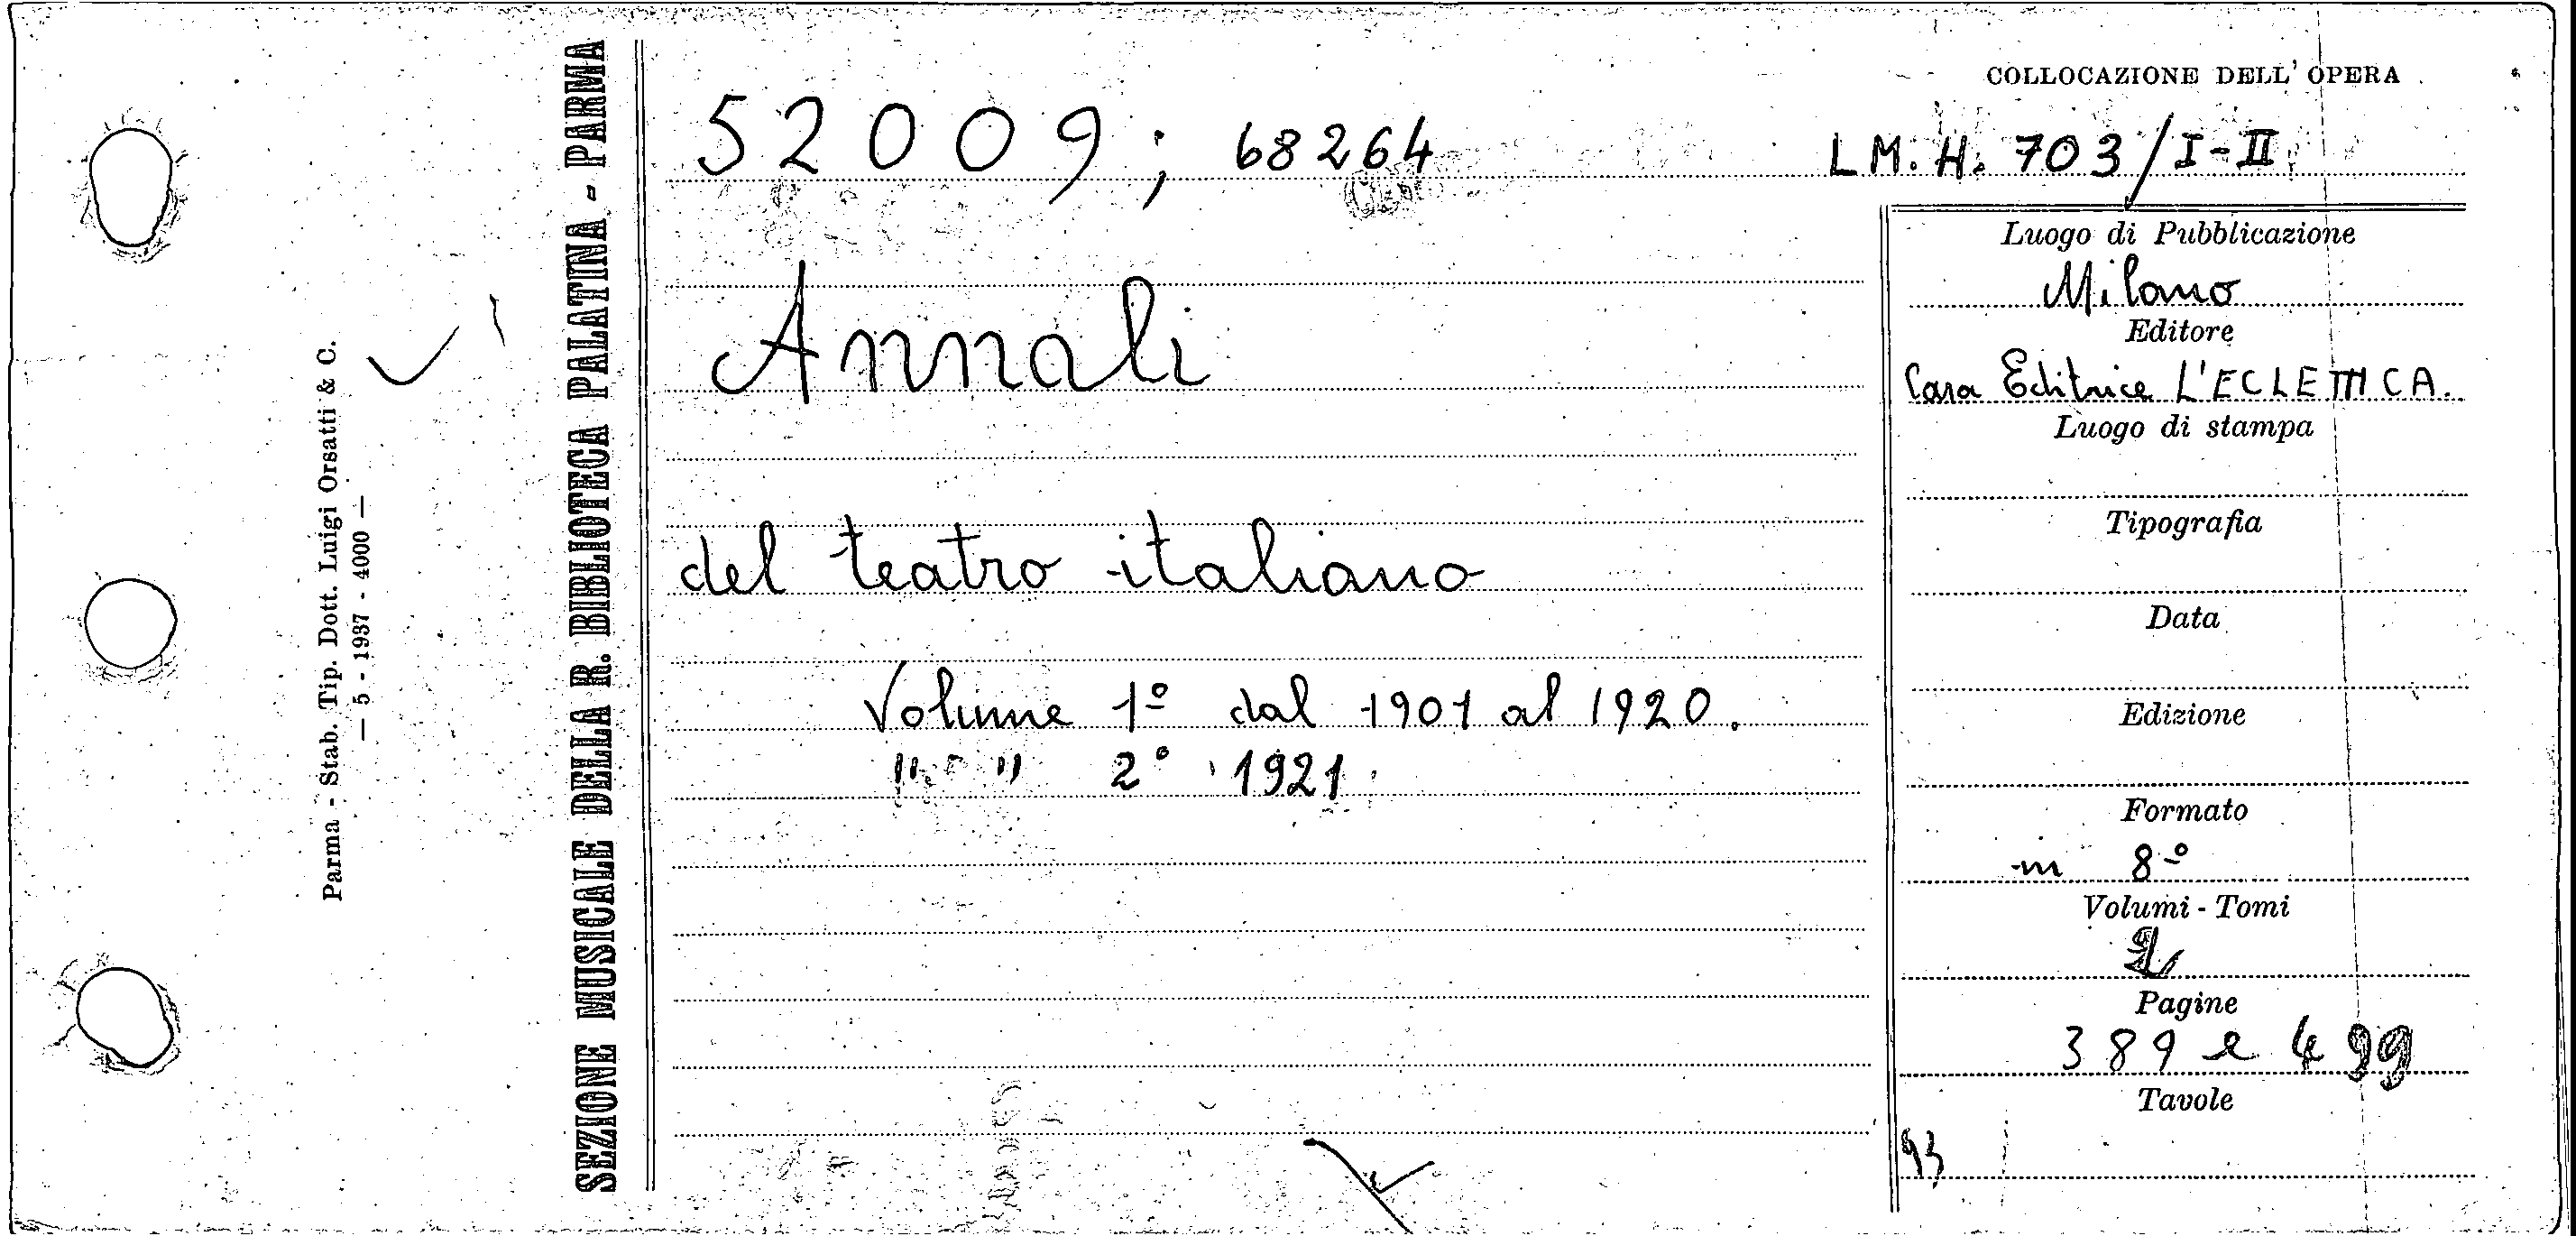 COLLOCAZIONE DELL'OPERA
52009; 68264
L M. H. 703/I-II
Annali
del teatro italiano
Volume 1º dal 1901 al 1920.
" " 2º 1921.
Luogo di Pubblicazione
Milano
Editore
Casa Editrice L'ECLETTICA.
Luogo di stampa
Tipografia
Data
Edizione
Formato
in 8º
Volumi - Tomi
2
Pagine
389 e 499
Tavole
93
SEZIONE MUSICALE DELLA R. BIBLIOTECA PALATINA - PARMA
Parma - Stab. Tip. Dott. Luigi Orsatti & C.
— 5 - 1937 - 4000 —